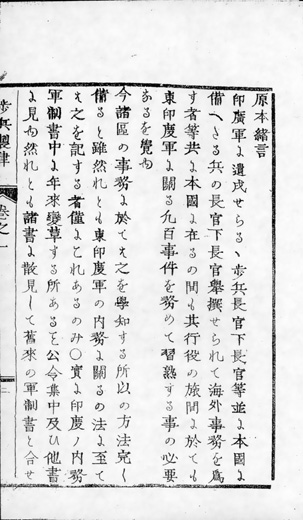 原本緒言
印度軍に遣戍せらるゝ歩兵長官下長官等並に本國に
備へたる兵の長官下長官擧撰せられて海外事務を爲
す者等共に本國に在るの間も其行役の旅間に於ても
東印度軍に關る凢百事件を務めて習熟する事の必要
なるを覺ゆ
今諸區の事務に於て之を學知する所以の方法完く
備ると雖然れとも東印度軍の内務に關るの法に至て
之を記する者僅にこれあるのみ〇實に印度ノ内務
軍制書中に年來變革する所あるを公令集中及ひ他書
に見ゆ然れとも諸書に散見して舊來の軍制書と合せ
歩兵製律
卷之一